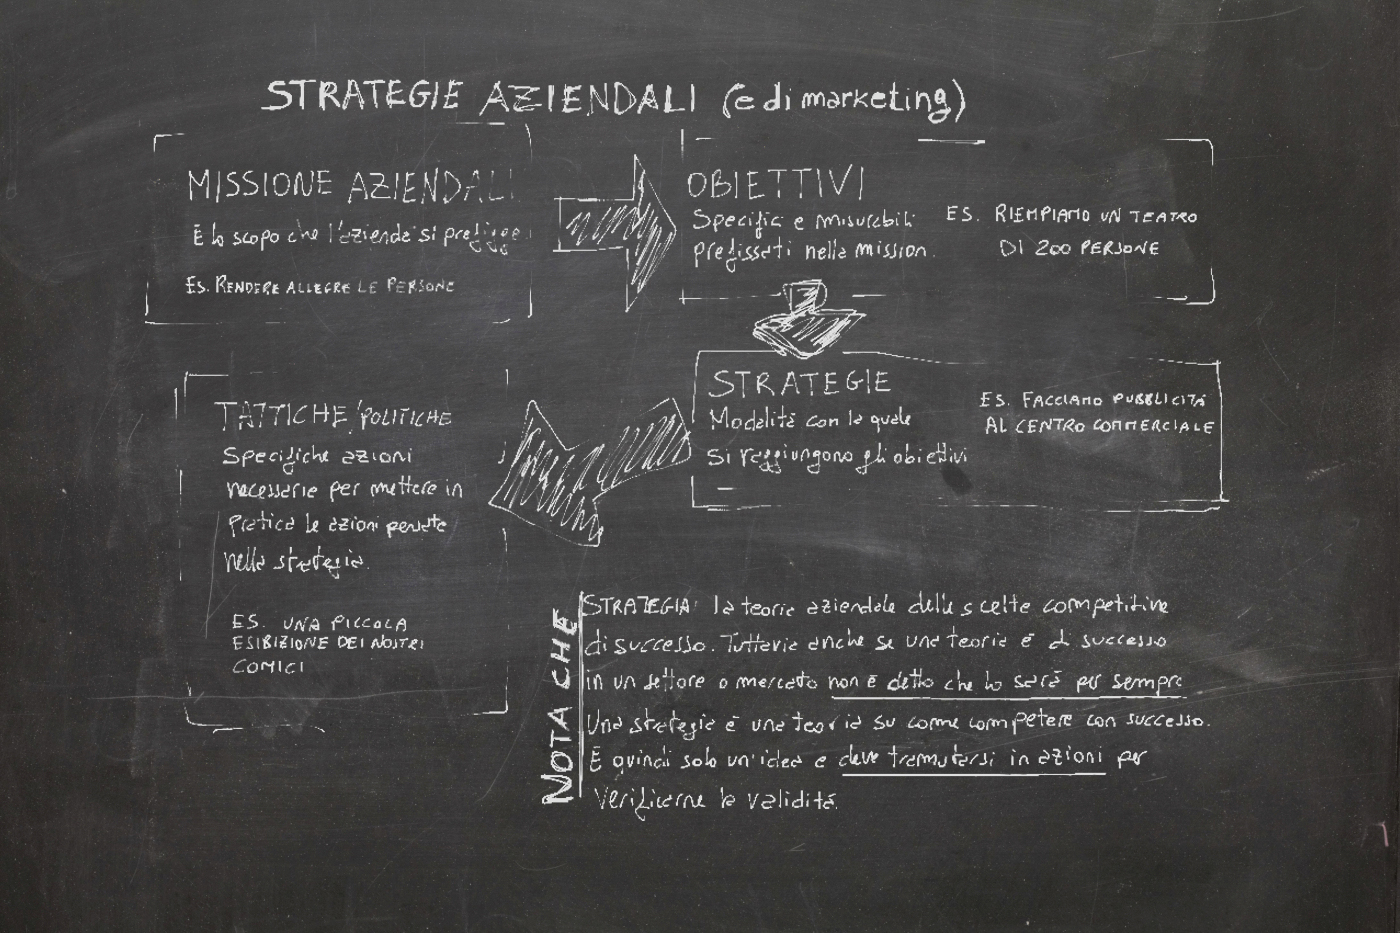 STRATEGIE AZIENDALI (e di marketing)
MISSIONE AZIENDALI
È lo scopo che l'azienda si prefigge
ES. RENDERE ALLEGRE LE PERSONE
OBIETTIVI
Specifici e misurabili
prefissati nella mission.
ES. RIEMPIAMO UN TEATRO
DI 200 PERSONE
STRATEGIE
Modalità con le quale
si raggiungono gli obiettivi
ES. FACCIAMO PUBBLICITÁ
AL CENTRO COMMERCIALE
TATTICHE/POLITICHE
Specifiche azioni
necessarie per mettere in
pratica le azioni pensate
nella strategia.
ES. UNA PICCOLA
ESIBIZIONE DEI NOSTRI
COMICI
NOTA CHE
STRATEGIA: la teoria aziendale delle scelte competitive
di successo. Tuttavia anche se una teoria è di successo
in un settore o mercato non è detto che lo sarà per sempre
Una strategia è una teoria su come competere con successo.
È quindi solo un'idea e deve tramutarsi in azioni per
verificarne la validità.